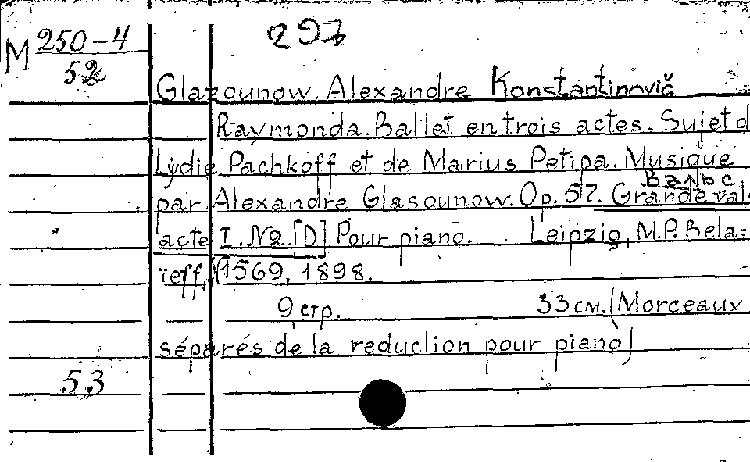 297
M 250-4
52
Glazounow. Alexandre Konstantinovič
Raymonda. Ballet en trois actes. Sujet d
Lydie Pachkoff et de Marius Petipa. Musique
par Alexandre Glasounow. Op. 57. Grande val-
acte I, №. [D] Pour piano. Leipzig, M.P. Bela=
ieff, 1569, 1898.
9 стр. 33 см. /Morceaux
séparés de la reduction pour piano/
53